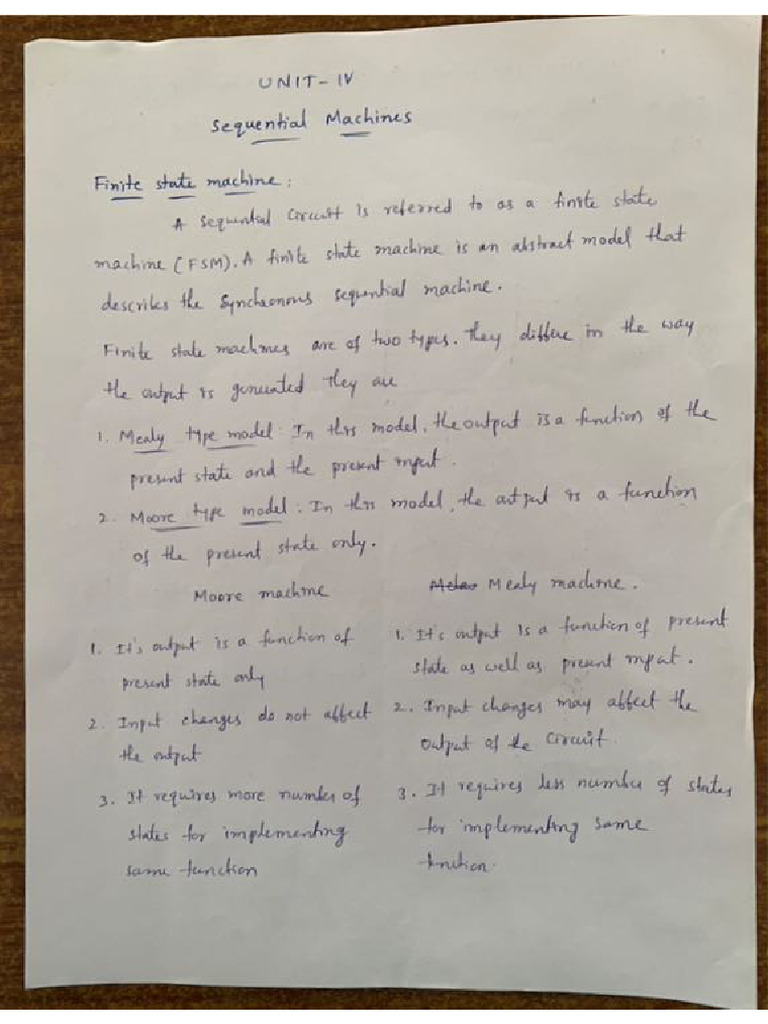 UNIT-IV
Sequential Machines
Finite state machine:
A sequential circuit is referred to as a finite state
machine (FSM). A finite state machine is an abstract model that
describes the synchronous sequential machine.
Finite state machines are of two types. They differe in the way
the output is generated they are
1. Mealy type model: In this model, the output is a function of the
present state and the present input.
2. Moore type model: In this model, the output is a function
of the present state only.
Moore machine
Mealy machine.
1. It's output is a function of
present state only
2. Input changes do not affect
the output
3. It requires more number of
states for implementing
same function
1. It's output is a function of present
state as well as present input.
2. Input changes may affect the
output of the circuit.
3. It requires less number of states
for implementing same
function.